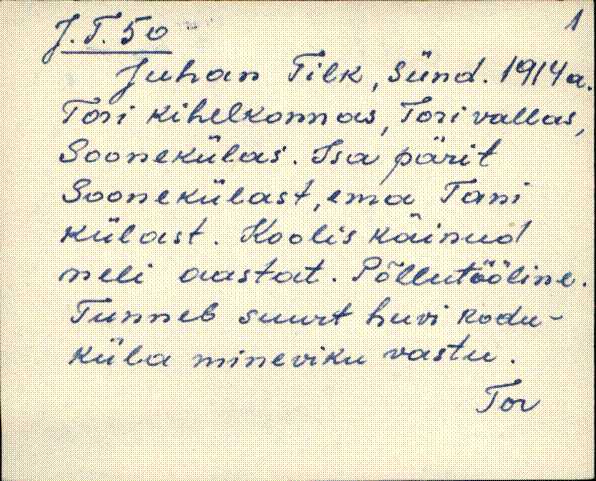 1
J.T. 50
Juhan Tilk, sünd. 1914 a.
Tori kihelkonnas, Tori vallas,
Soonekülas. Isa pärit
Soonekülast, ema Tani
külast. Koolis käinud
neli aastat. Põllutööline.
Tunneb suurt huvi kodu-
küla mineviku vastu.
Tor